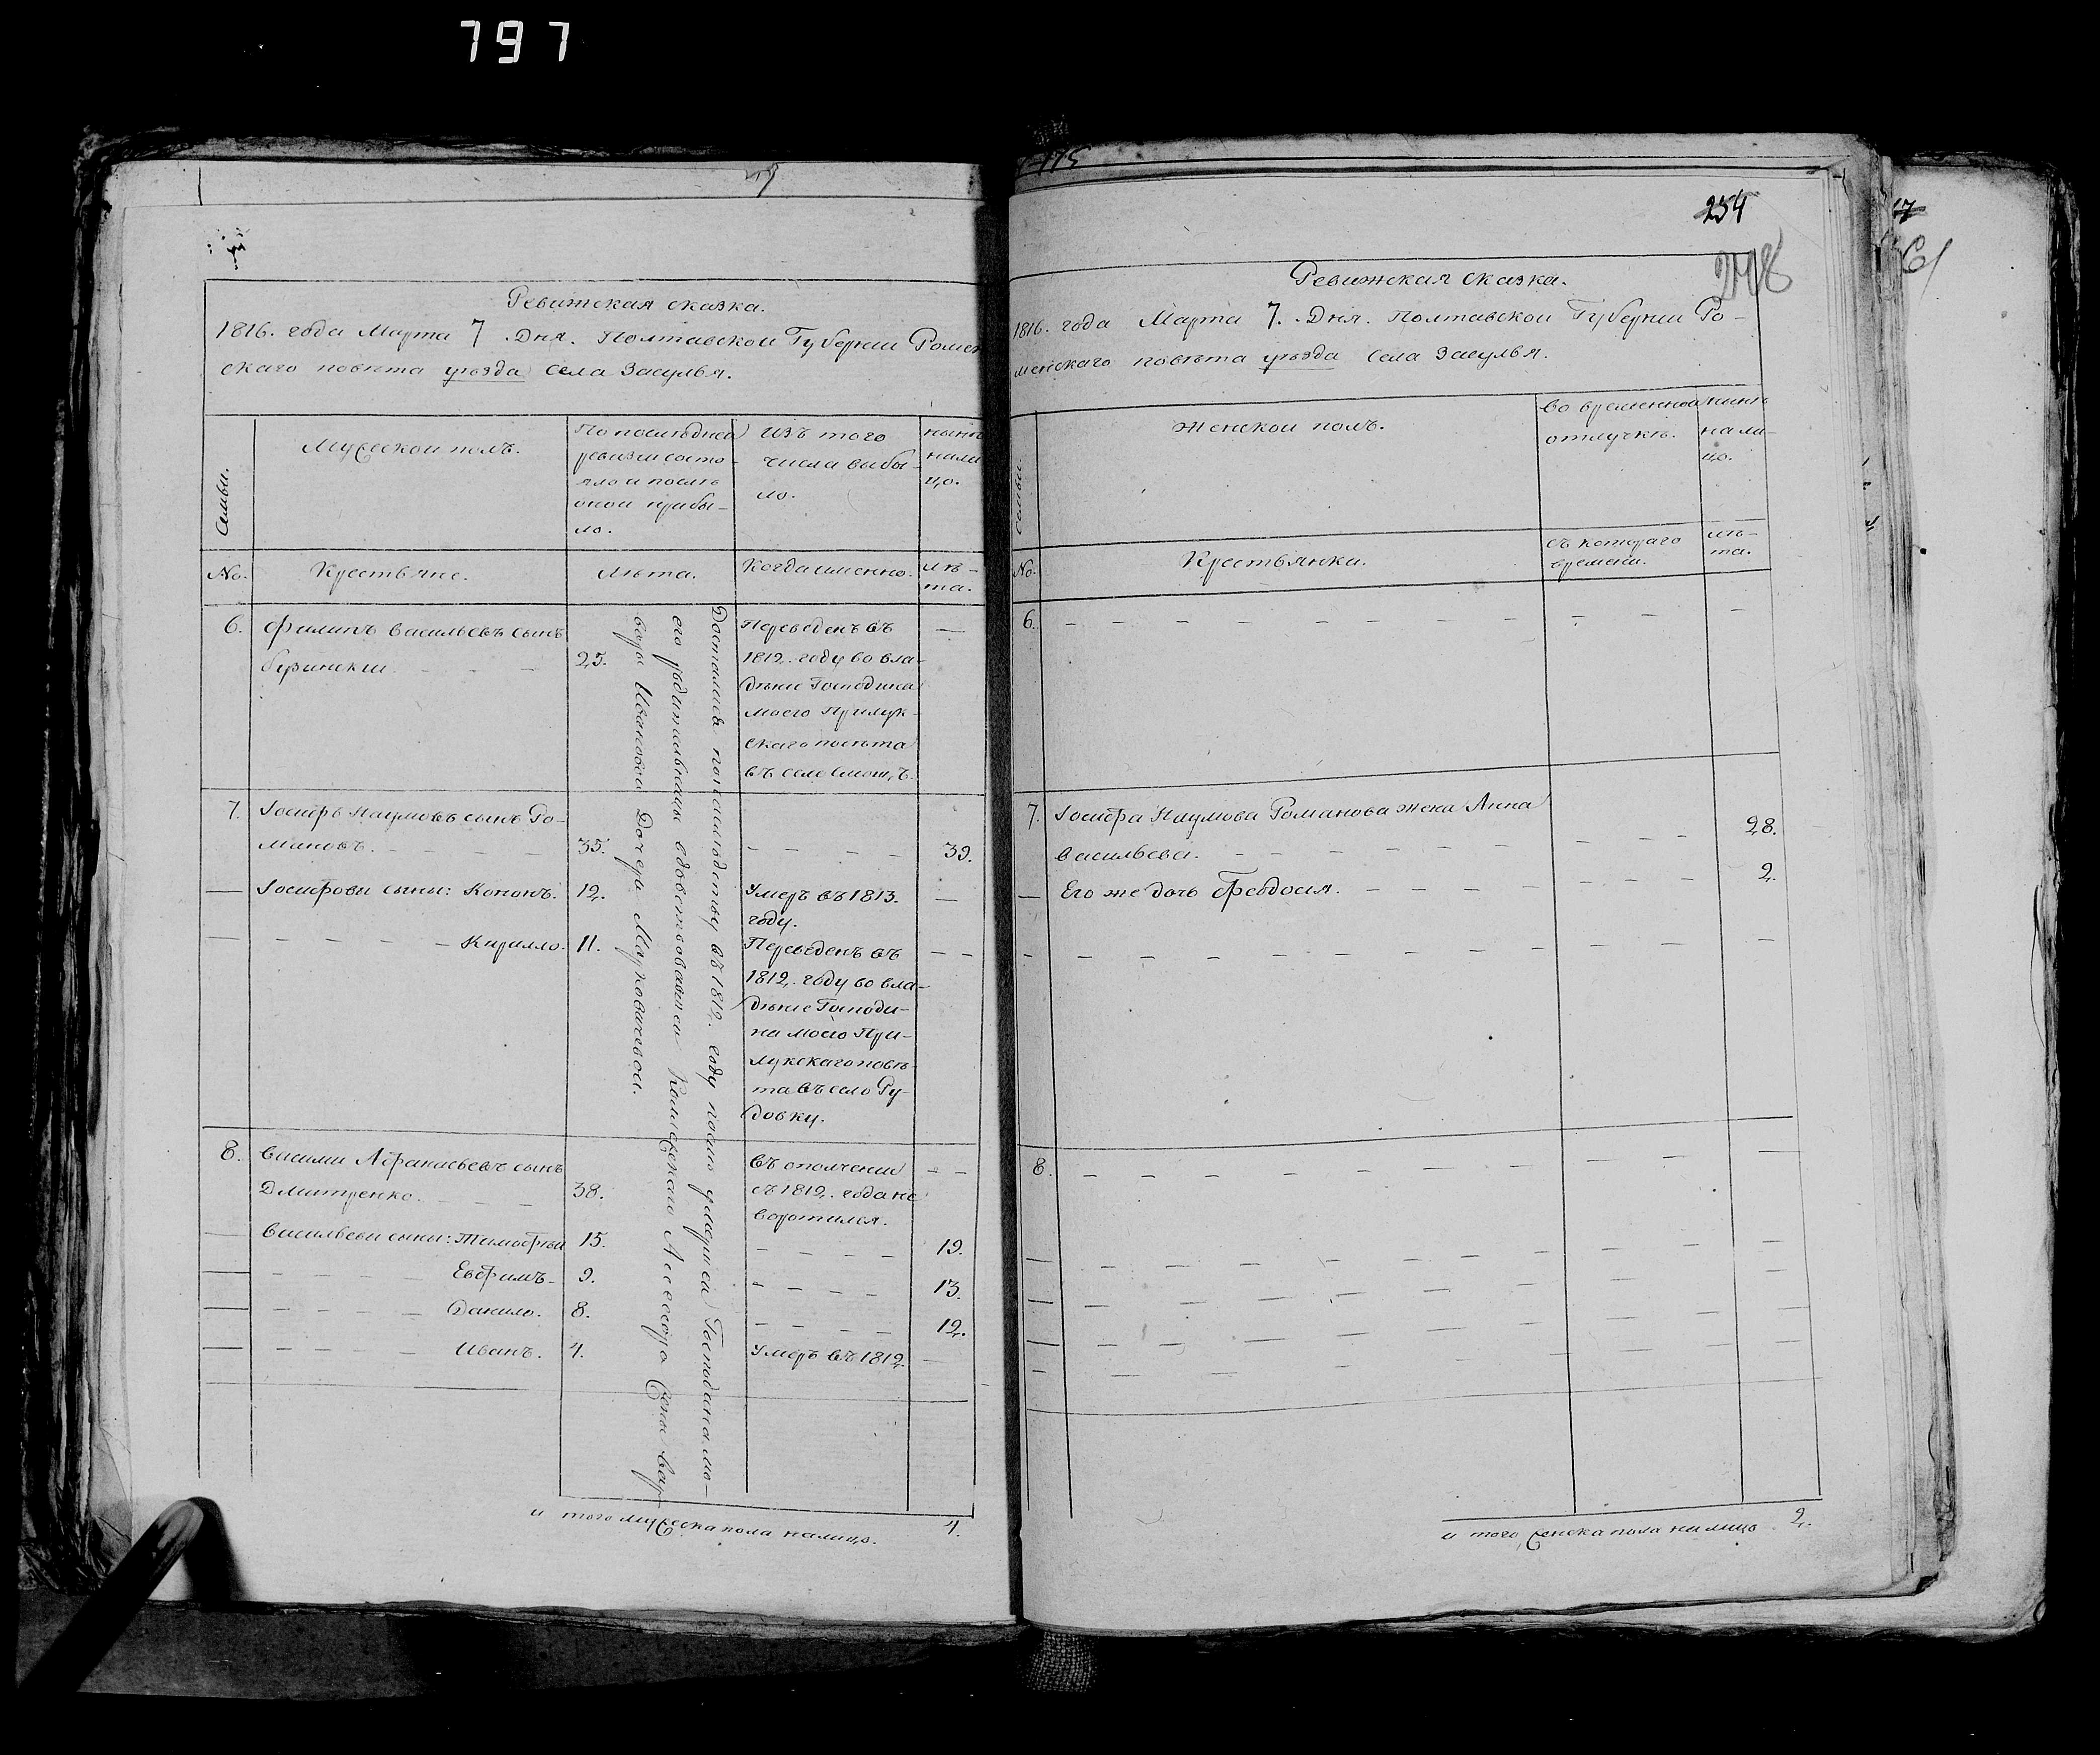 797
Ревижская сказка.
1816. года Марта 7 Дня. Полтавской Губернии Ромен
скаго повѣта уѣзда села Засулья.
Семьи.
Мужеской полъ.
По последней
ревизіи состо-
яло и послѣ
оной прибы-
ло.
Изъ того
числа выбы-
ло.
нынѣ
нали
цо.
No.
Крестьяне.
Лѣта.
Когда именно.
лѣ-
та.
6.
Филипъ Васильевъ сынъ
25.
Переведенъ въ
1812. году во вла-
дѣніе Господина
моего Прилук-
скаго повѣта
въ селе
7.
Іосифъ Наумовъ сынъ Ро-
мановъ.
35.
39.
Іосифови сыны: Кононъ.
12.
Умеръ въ 1813.
году.
Кирилло.
11.
Переведенъ въ
1812. году во вла-
дѣніе Господи-
на моего При-
лукскаго повѣ-
та въ село Ру-
довку.
8.
Василий Афанасьевъ сынъ
Дмитренко.
38.
въ ополченіи
съ 1812. года не
воротился.
Васильеви сыни: Тимофѣй
15.
19.
Евфимъ
9.
13.
Данило.
8.
12.
Иванъ.
4.
Умеръ въ 1812.
Досталися по наследству въ 1812. году после умершей Господина мо-
его родительницы вдовствовавшей Коллежского Ассесора жены Вар-
вары Ивановой Дочери Маркевичевой.
и того мужеска пола налицо.
4.
175
234
Ревижская сказка.
1816. года Марта 7. Дня. Полтавской Губернии Ро-
менскаго повѣта уѣзда села Засулья.
семьи.
Женской полъ.
Во временной
отлучкѣ.
нынѣ
нали-
цо.
No.
Крестьянки.
съ котораго
времени.
лѣ-
та.
6.
7.
Іосифа Наумова Романова жена Анна
Васильева.
28.
Его же дочь Феодосия.
2.
8.
и того женска пола налицо
2.